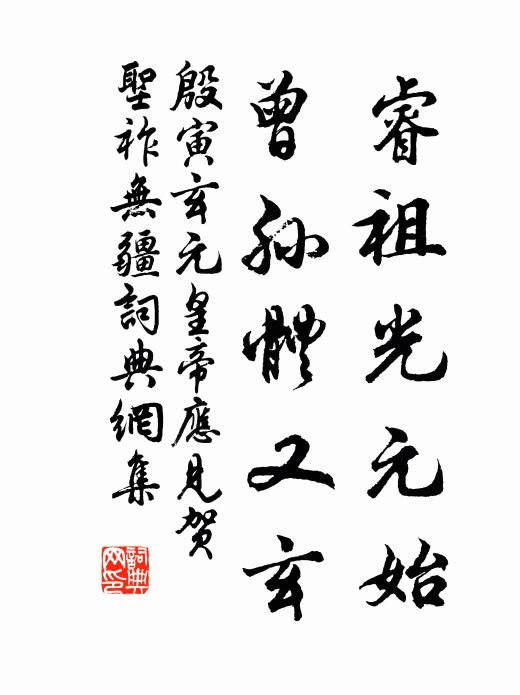 睿祖光元始
曾孫體又玄
殷寅玄元皇帝應見賀
聖祚無疆詞典網集
詞典網印